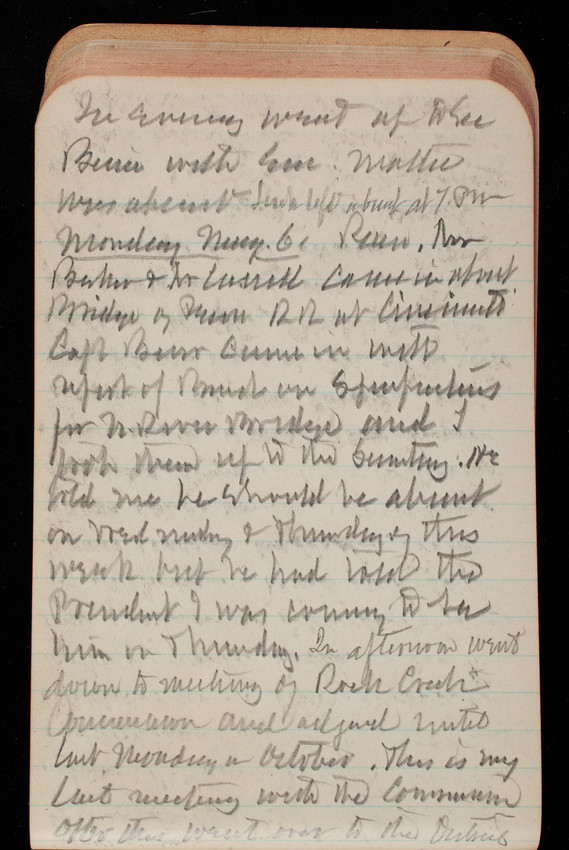 In evening went up to see
with Gen. Mattie
was absent left about at 7. PM
Monday Aug. 6. Rain. Mr
Barker & Mr came in about
Bridge of Penn RR at Cincinnati
Capt came in with
report of Board on Specifications
for N. River Bridge and I
took them up to the Secretary. He
told me he should be absent
on Wednesday & Thursday of this
week but he had told the
President I was coming to see
him on Thursday. In afternoon went
down to meeting of Rock Creek
Commission and until
last Monday in October. This is my
last meeting with the Commission
After this went over to the District